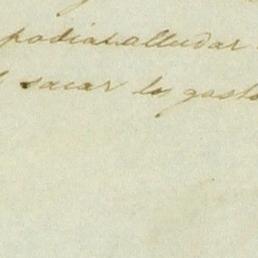 podias alludar
sacar los gasto